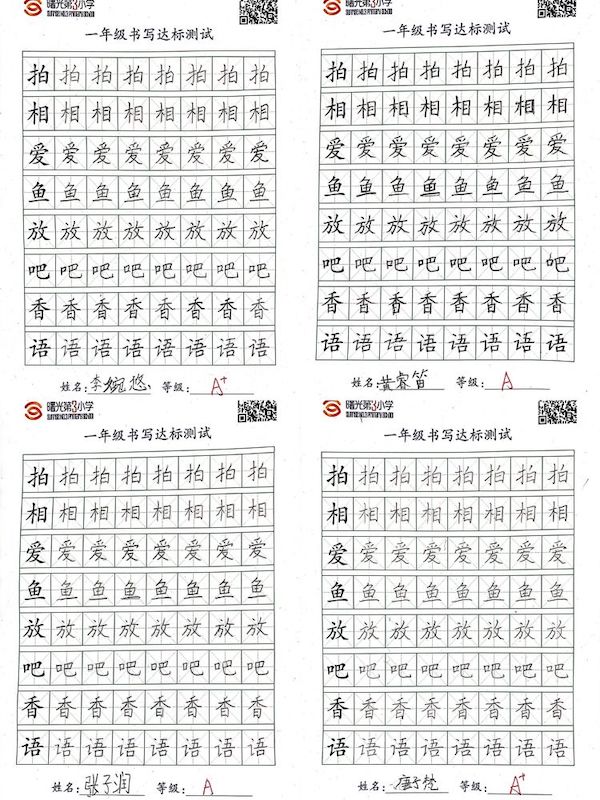 曙光第3小学
一年级书写达标测试
拍拍拍拍拍拍拍拍
相相相相相相相相
爱爱爱爱爱爱爱爱
鱼鱼鱼鱼鱼鱼鱼鱼
放放放放放放放放
吧吧吧吧吧吧吧吧
香香香香香香香香
语语语语语语语语
姓名:李婉悠 等级: A+
曙光第3小学
一年级书写达标测试
拍拍拍拍拍拍拍拍
相相相相相相相相
爱爱爱爱爱爱爱爱
鱼鱼鱼鱼鱼鱼鱼鱼
放放放放放放放放
吧吧吧吧吧吧吧吧
香香香香香香香香
语语语语语语语语
姓名: 等级: A
曙光第3小学
一年级书写达标测试
拍拍拍拍拍拍拍拍
相相相相相相相相
爱爱爱爱爱爱爱爱
鱼鱼鱼鱼鱼鱼鱼鱼
放放放放放放放放
吧吧吧吧吧吧吧吧
香香香香香香香香
语语语语语语语语
姓名:张子润 等级: A
曙光第3小学
一年级书写达标测试
拍拍拍拍拍拍拍拍
相相相相相相相相
爱爱爱爱爱爱爱爱
鱼鱼鱼鱼鱼鱼鱼鱼
放放放放放放放放
吧吧吧吧吧吧吧吧
香香香香香香香香
语语语语语语语语
姓名:唐子梵 等级: A+